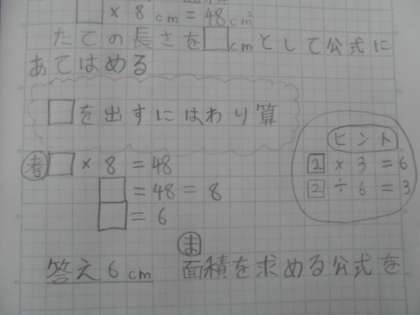 □ × 8 cm = 48 cm²
たての長さを□cmとして公式に
あてはめる
□を出すにはわり算
考 □ × 8 = 48
□ = 48 = 8
□ = 6
ヒント
2 × 3 = 6
2 ÷ 6 = 3
答え 6 cm
ま 面積を求める公式を